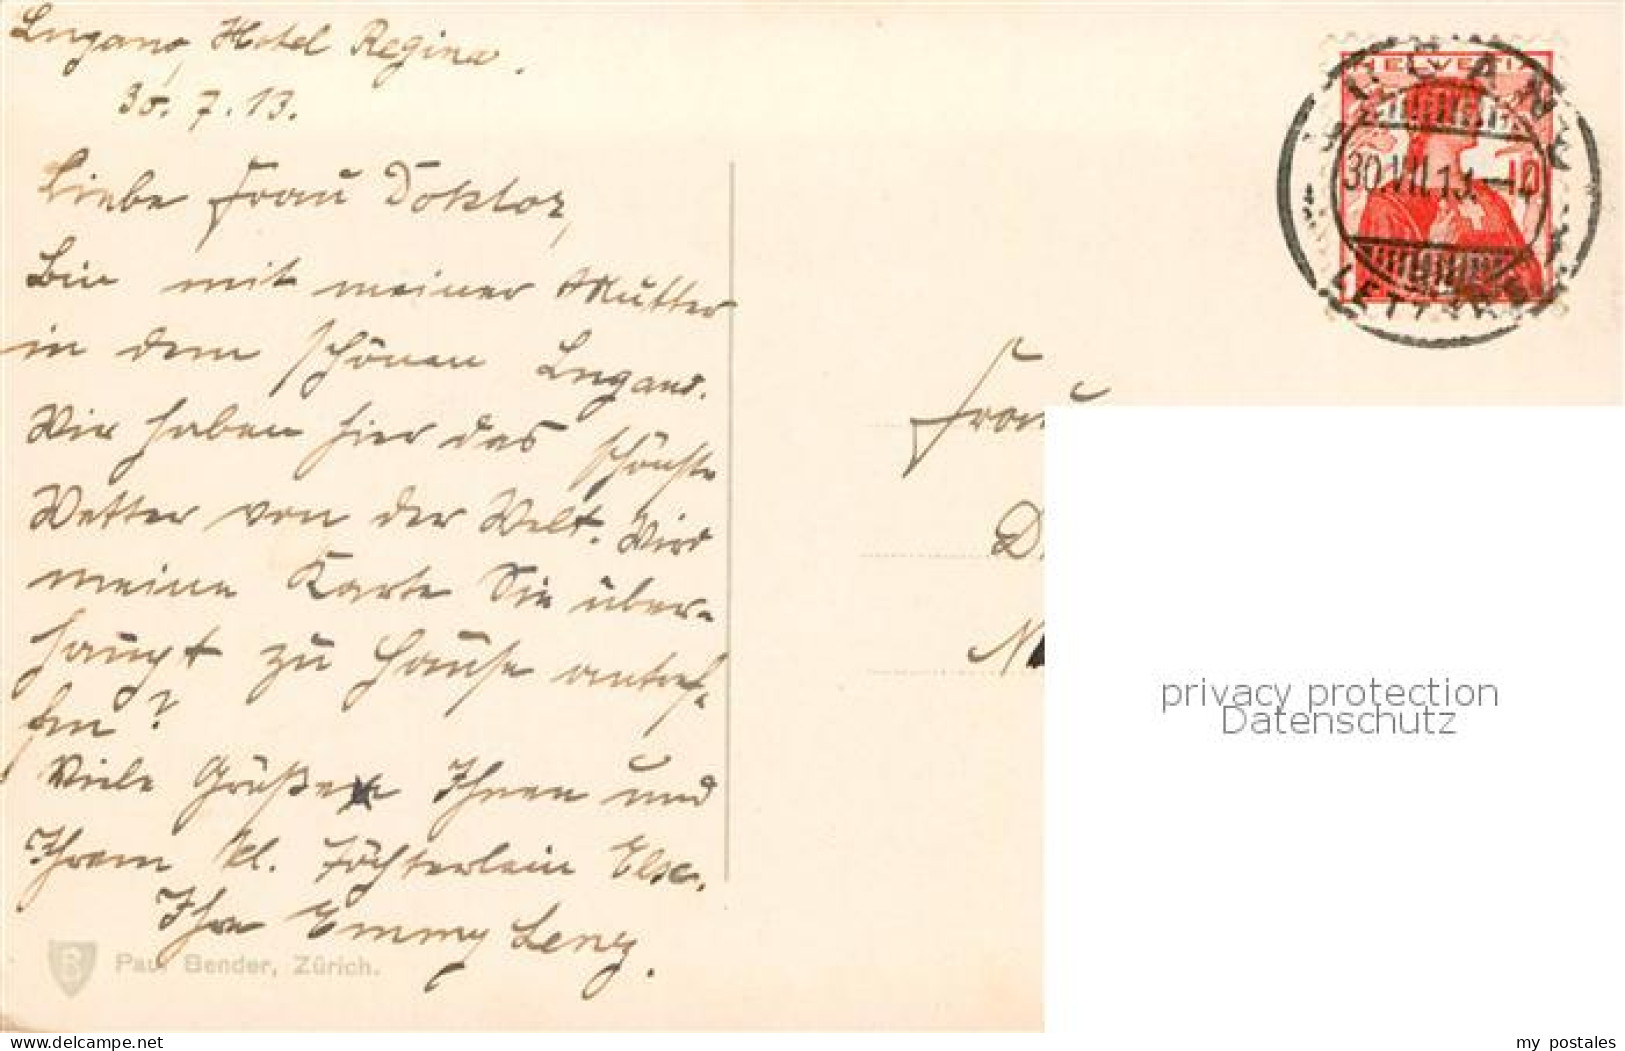 Lugano, Hotel Regina.
30. 7. 13.
Liebe Frau Doktor,
Bin mit meiner Mutter
in dem schönen Lugano.
Wir haben hier das schönste
Wetter von der Welt. Wird
meine Karte Sie über-
haupt zu Hause antref-
fen?
Viele Grüße Ihnen und
Ihrem kl. Töchterlein Else.
Ihre Emmy Lenz.
Paul Bender, Zürich.
HELVETIA
MILANO
30.VII.13.-10
LETTERE
Frau
privacy protection
Datenschutz
www.delcampe.net
my_postales